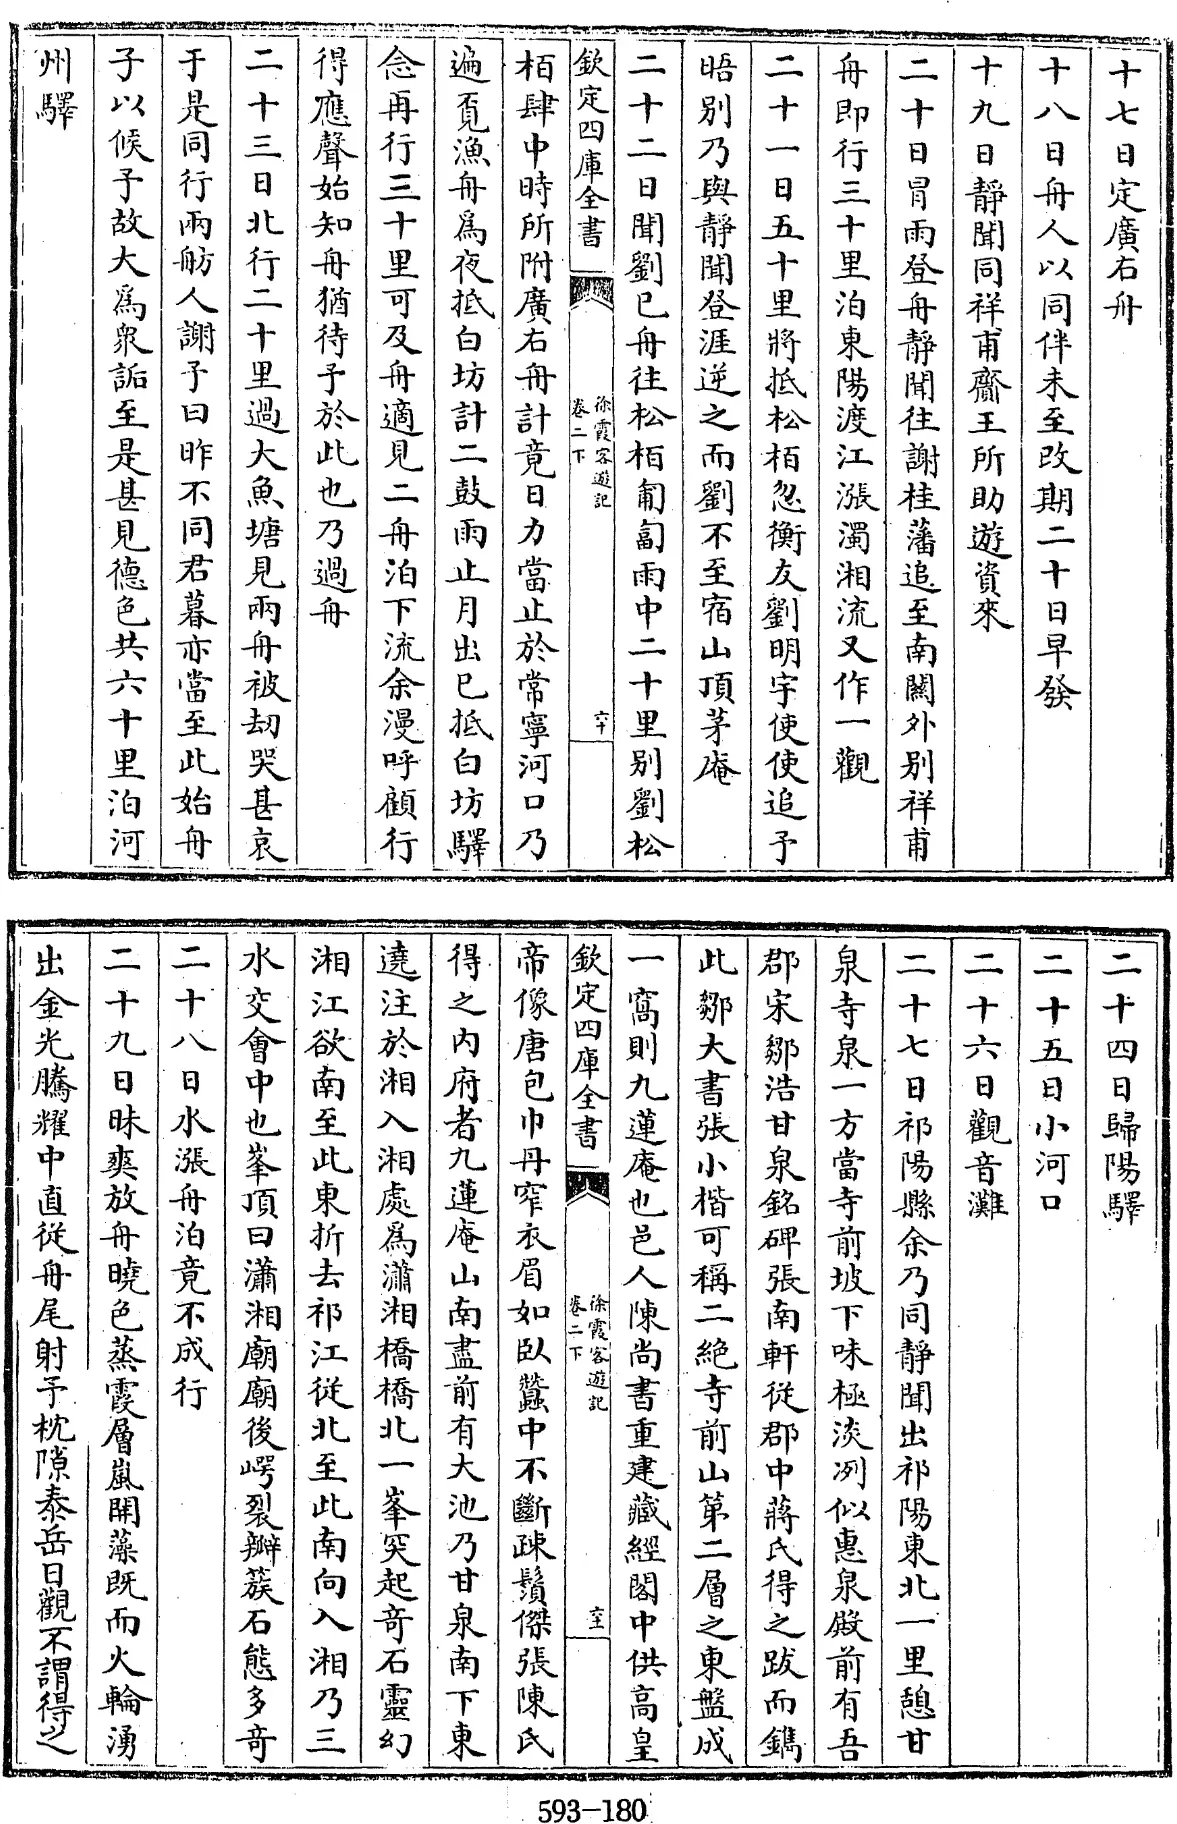 十七日定廣右舟
十八日舟人以同伴未至改期二十日早發
十九日靜聞同祥甫齎王所助遊資來
二十日冒雨登舟靜聞往謝桂藩追至南關外別祥甫
舟即行三十里泊東陽渡江漲濁湘流又作一觀
二十一日五十里將抵松栢忽衡友劉明宇使使追予
晤別乃與靜聞登涯逆之而劉不至宿山頂茅庵
二十二日聞劉已舟往松栢匍匐雨中二十里別劉松
欽定四庫全書
徐霞客遊記
卷二下
六十
栢肆中時所附廣右舟計竟日力當止於常寧河口乃
遍覔漁舟爲夜抵白坊計二鼓雨止月出已抵白坊驛
念再行三十里可及舟適見二舟泊下流余漫呼顧行
得應聲始知舟猶待予於此也乃過舟
二十三日北行二十里過大魚塘見兩舟被劫哭甚哀
于是同行兩舫人謝予曰昨不同君暮亦當至此始舟
子以候予故大爲衆詬至是甚見德色共六十里泊河
州驛
二十四日歸陽驛
二十五日小河口
二十六日觀音灘
二十七日祁陽縣余乃同靜聞出祁陽東北一里憩甘
泉寺泉一方當寺前坡下味極淡冽似惠泉殿前有吾
郡宋鄒浩甘泉銘碑張南軒從郡中蔣氏得之跋而鐫
此鄒大書張小楷可稱二絕寺前山第二層之東盤成
一窩則九蓮庵也邑人陳尚書重建藏經閣中供高皇
欽定四庫全書
徐霞客遊記
卷二下
六十一
帝像唐包巾丹窄衣眉如臥蠶中不斷疎鬚傑張陳氏
得之内府者九蓮庵山南盡前有大池乃甘泉南下東
遶注於湘入湘處爲瀟湘橋橋北一峯突起奇石靈幻
湘江欲南至此東折去祁江從北至此南向入湘乃三
水交會中也峯頂曰瀟湘廟廟後崿裂瓣簇石態多奇
二十八日水漲舟泊竟不成行
二十九日昧爽放舟曉色蒸霞層嵐開藻既而火輪湧
出金光騰耀中直從舟尾射予枕隙泰岳日觀不謂得之
593-180